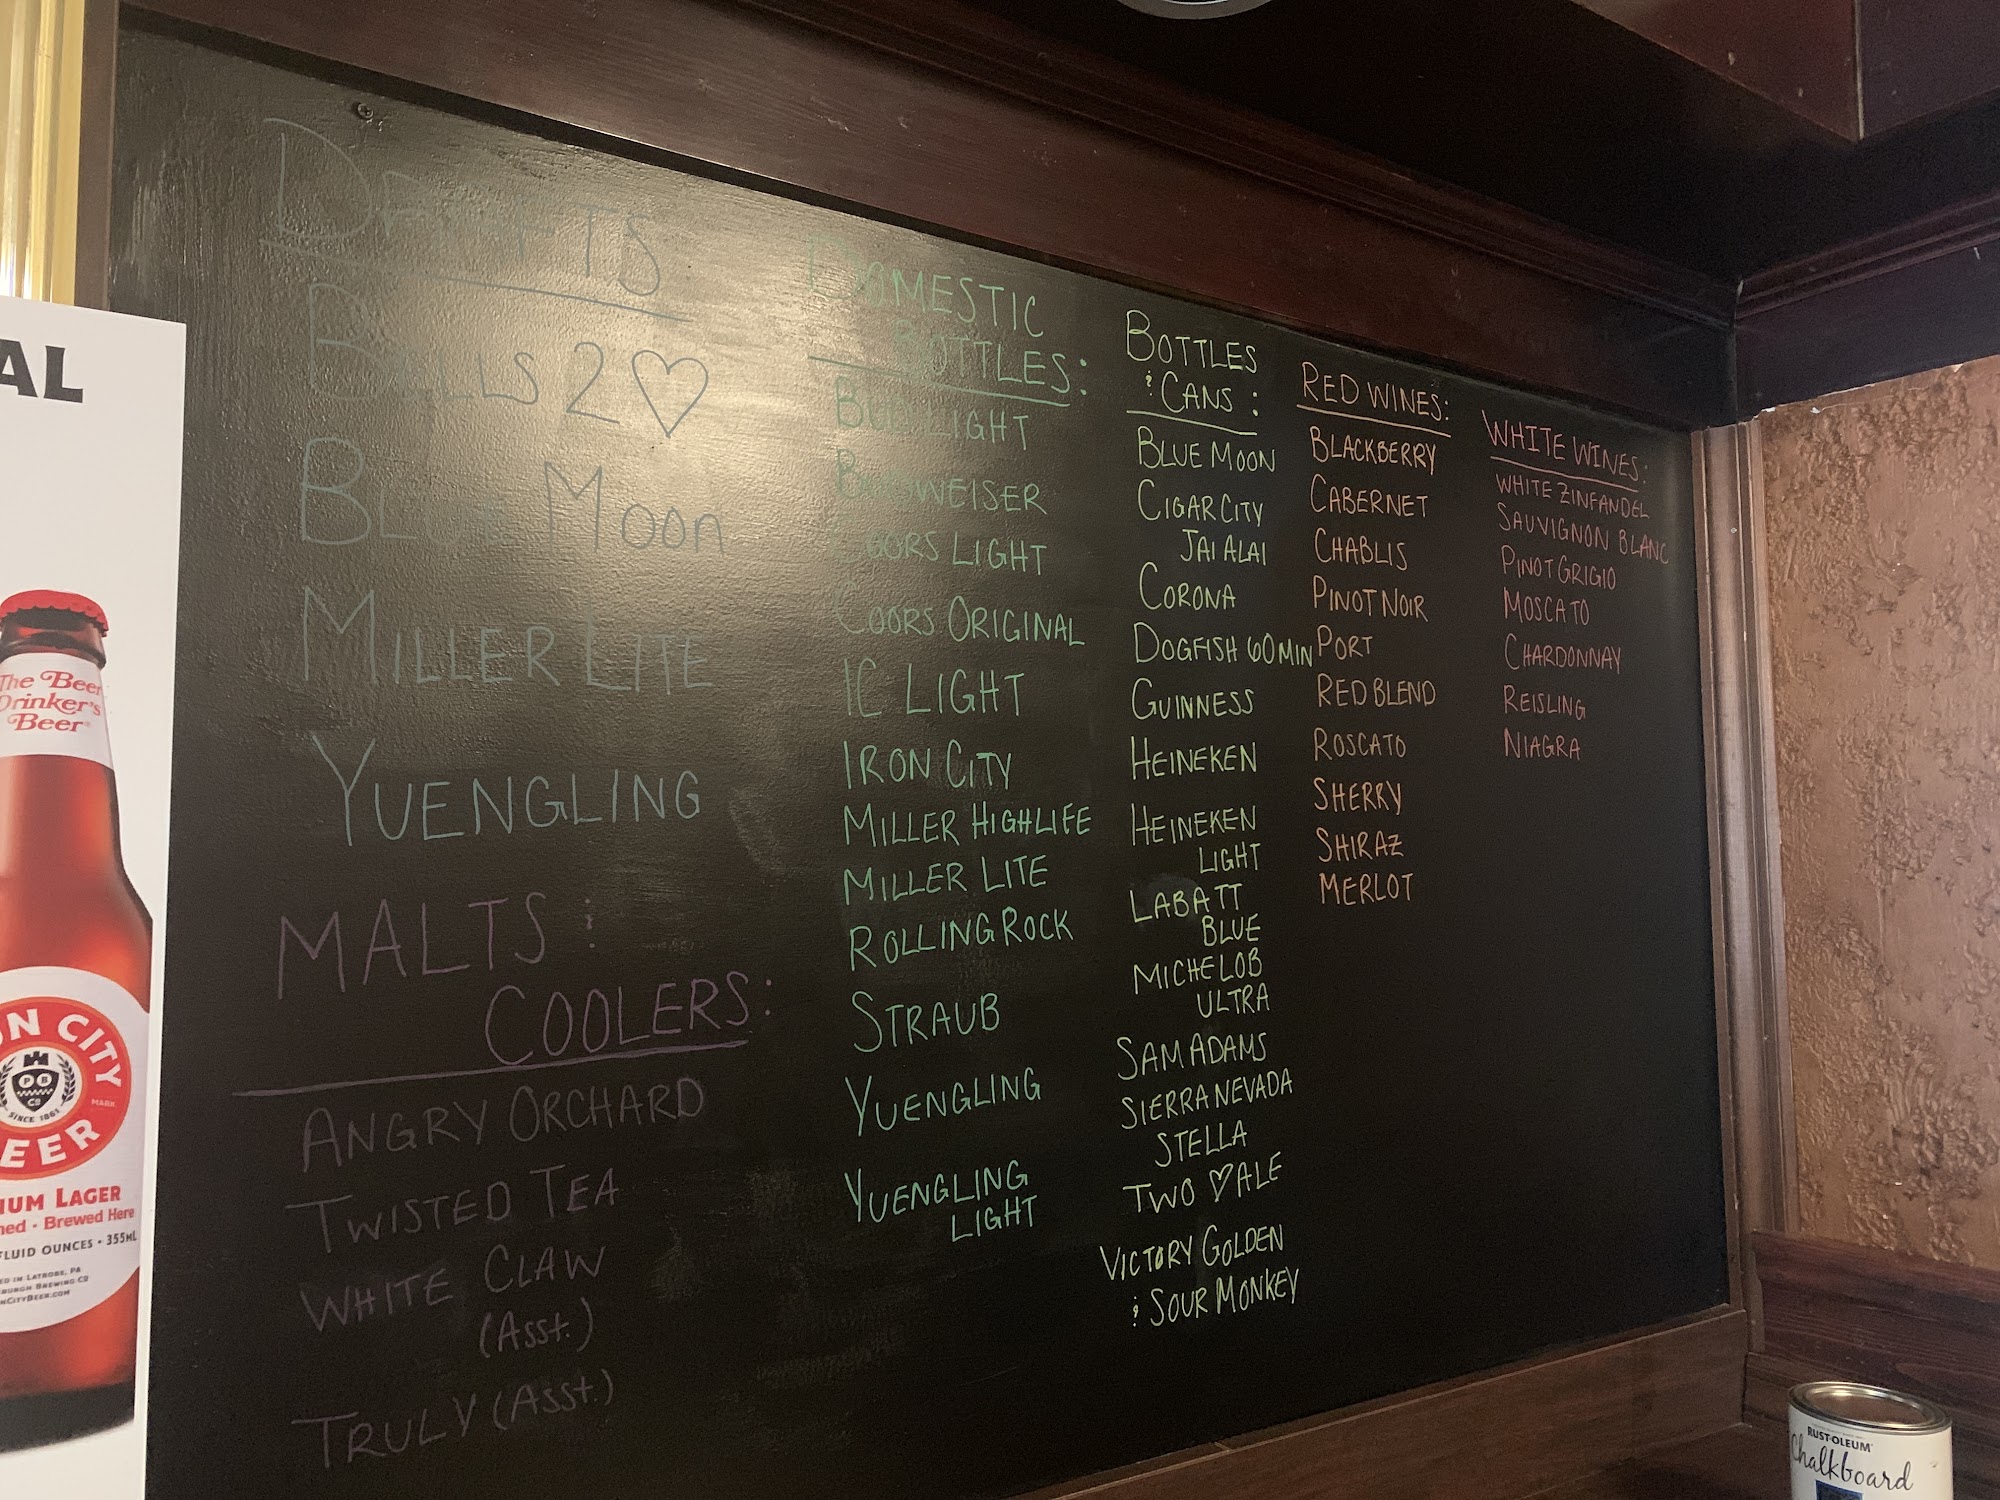 DRAFTS
BELLS 2♡
BLUE MOON
MILLER LITE
YUENGLING
MALTS &
COOLERS:
ANGRY ORCHARD
TWISTED TEA
WHITE CLAW
(Asst.)
TRULY (Asst.)
DOMESTIC
BOTTLES:
BUD LIGHT
BUDWEISER
COORS LIGHT
COORS ORIGINAL
IC LIGHT
IRON CITY
MILLER HIGHLIFE
MILLER LITE
ROLLING ROCK
STRAUB
YUENGLING
YUENGLING
LIGHT
BOTTLES
& CANS:
BLUE MOON
CIGAR CITY
JAI ALAI
CORONA
DOGFISH 60 MIN
GUINNESS
HEINEKEN
HEINEKEN
LIGHT
LABATT
BLUE
MICHELOB
ULTRA
SAM ADAMS
SIERRA NEVADA
STELLA
TWO ♡ ALE
VICTORY GOLDEN
& SOUR MONKEY
RED WINES:
BLACKBERRY
CABERNET
CHABLIS
PINOT NOIR
PORT
RED BLEND
ROSCATO
SHERRY
SHIRAZ
MERLOT
WHITE WINES:
WHITE ZINFANDEL
SAUVIGNON BLANC
PINOT GRIGIO
MOSCATO
CHARDONNAY
REISLING
NIAGRA
AL
The Beer
Drinker's
Beer
ON CITY
PB
CO
SINCE 1861
MARK
BEER
IUM LAGER
ned • Brewed Here
FLUID OUNCES • 355ML
ED IN LATROBE, PA
BURGH BREWING CO
NCITYBEER.COM
RUST-OLEUM
Chalkboard